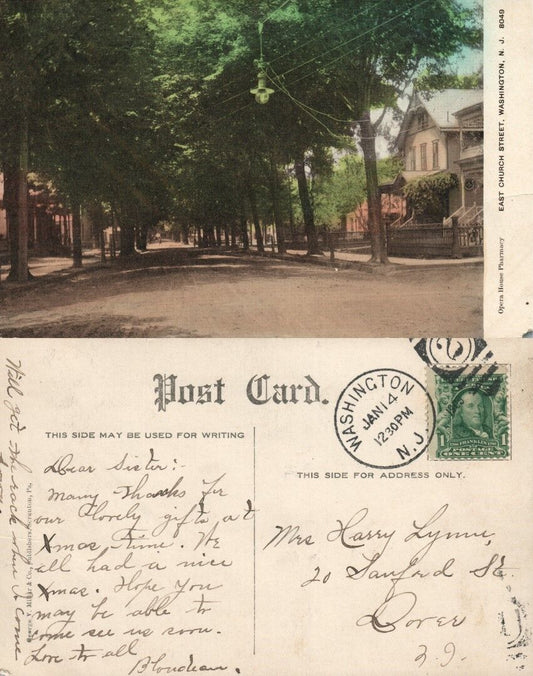 EAST CHURCH STREET, WASHINGTON, N. J. 8049
Opera House Pharmacy
Post Card.
THIS SIDE MAY BE USED FOR WRITING
THIS SIDE FOR ADDRESS ONLY.
WASHINGTON
JAN 14
1230PM
N.J.
2
FRANKLIN
1
POSTAGE
ONE CENT
Dear Sister:-
Many thanks for
our lovely gifts at
Xmas time. We
all had a nice
Xmas. Hope you
may be able to
come see us soon.
Love to all
Will get
when I come
Mrs Harry Lynn,
20 Sanford St.
Dover
N.J.